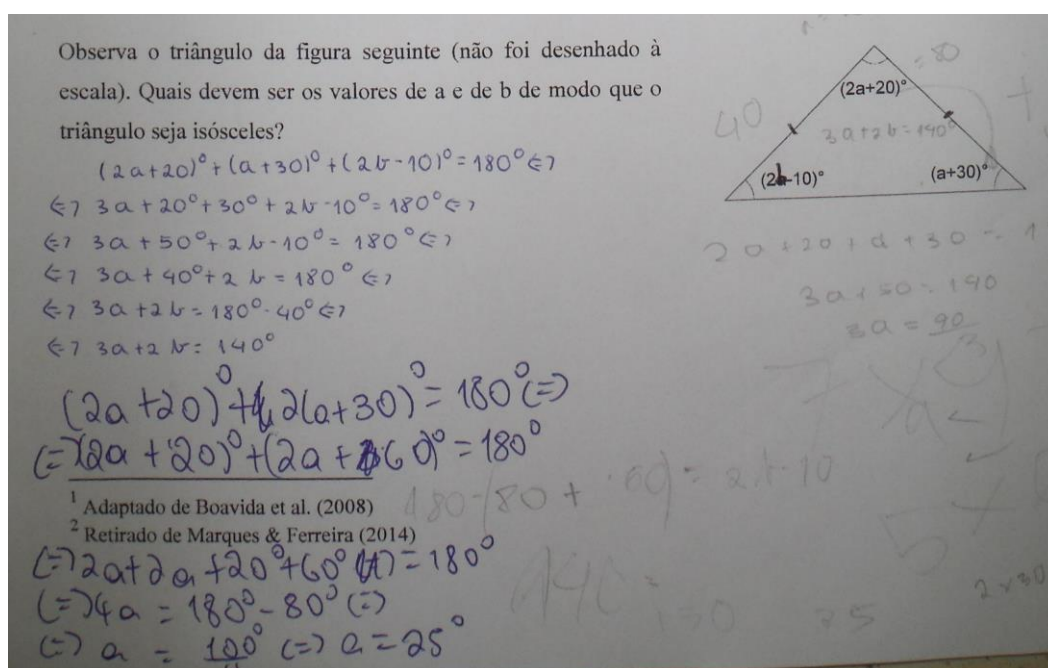 Observa o triângulo da figura seguinte (não foi desenhado à
escala). Quais devem ser os valores de a e de b de modo que o
triângulo seja isósceles?
(2a+20)° + (a+30)° + (2b-10)° = 180° (=)
(=) 3a + 20° + 30° + 2b - 10° = 180° (=)
(=) 3a + 50° + 2b - 10° = 180° (=)
(=) 3a + 40° + 2b = 180° (=)
(=) 3a + 2b = 180° - 40° (=)
(=) 3a + 2b = 140°
(2a+20)° + 2(a+30)° = 180° (=)
(=) (2a + 20)° + (2a + 60)° = 180°
1 Adaptado de Boavida et al. (2008)
2 Retirado de Marques & Ferreira (2014)
(=) 2a + 2a + 20° + 60° = 180°
(=) 4a = 180° - 80° (=)
(=) a = 100° (=) a = 25°
= 80
(2a+20)°
40
3a+2b = 140°
(2b-10)°
(a+30)°
2a + 20 + a + 30 =
3a + 50 = 190
3a = 90
180-(80 +
= 2b-10
140 =
25
2x30